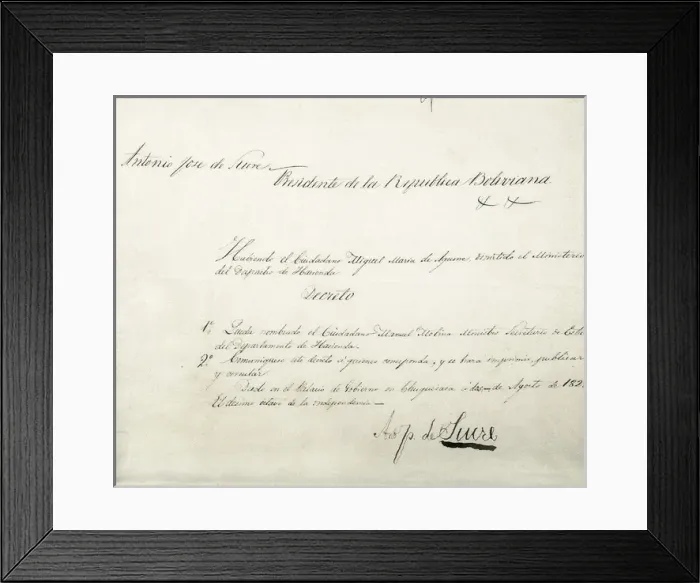 Antonio Jose de Sucre
Presidente de la Republica Boliviana
Habiendo el Ciudadano Miguel Maria de Aguirre el Ministerio
del Departo de Hacienda
Decreto
1º Queda nombrado el Ciudadano Manuel Molina Ministro Secretario de Estdo
del Departamento de Hacienda.
2º Comuniquese este decreto á quienes corresponda, y se hara imprimir, publicar
y circular
Dado en el Palacio de Gobierno en Chuquisaca á de Agosto de 182
El decimo octavo de la independencia
A. J. de Sucre